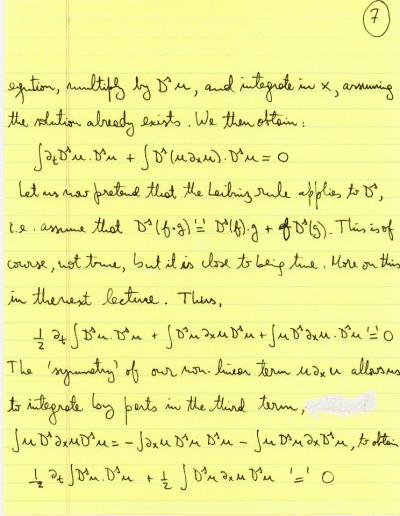 7
eqution, multiply by D^s u, and integrate in x, assuming
the solution already exists. We then obtain:
∫∂_t D^s u . D^s u + ∫D^s(u∂_x u) . D^s u = 0
Let us now pretend that the Leibniz rule applies to D^s,
i.e. assume that D^s(f.g) '=' D^s(f).g + f D^s(g). This is of
course, not true, but it is close to being true. More on this
in the next lecture. Thus,
1/2 ∂_t ∫D^s u . D^s u + ∫D^s u ∂_x u D^s u + ∫u D^s ∂_x u . D^s u '=' 0
The 'symmetry' of our non-linear term u∂_x u allows us
to integrate by parts in the third term,
∫u D^s ∂_x u D^s u = -∫∂_x u D^s u D^s u - ∫u D^s u ∂_x D^s u, to obtain
1/2 ∂_t ∫D^s u . D^s u + 1/2 ∫D^s u ∂_x u D^s u '=' 0